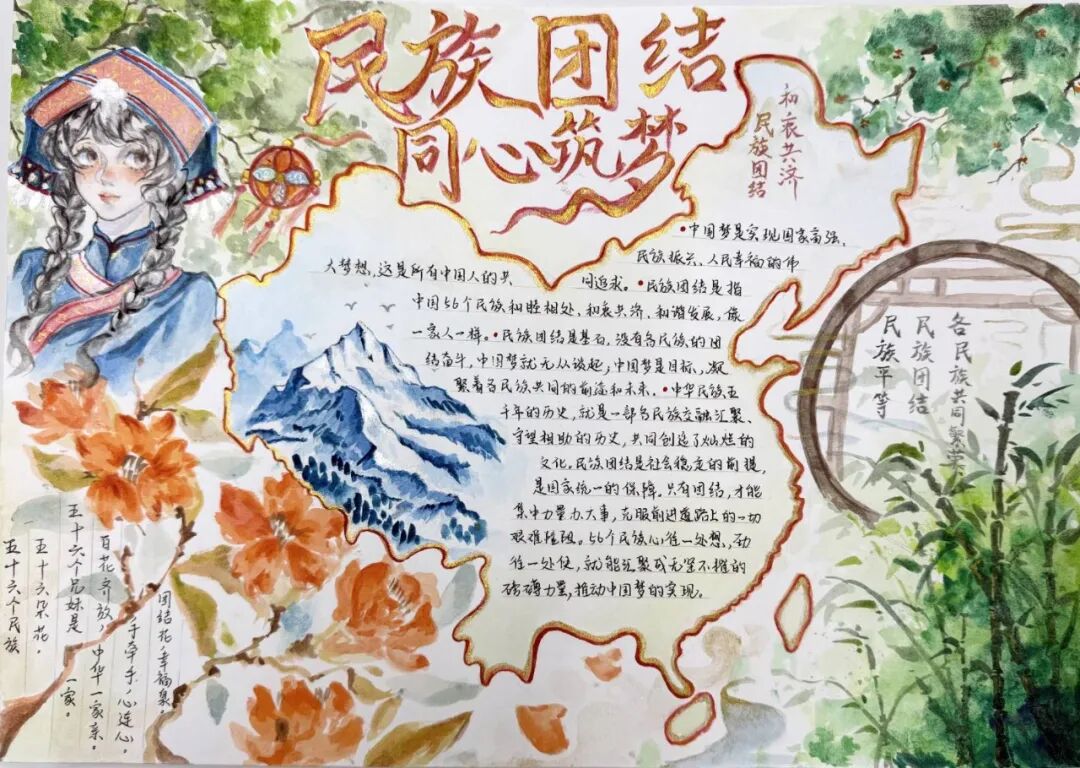 民族团结
同心筑梦
初衷共济
民族团结
•中国梦是实现国家富强、
民族振兴、人民幸福的伟
大梦想,这是所有中国人的共
同追求。•民族团结是指
中国56个民族和睦相处、和衷共济、和谐发展,像
一家人一样。•民族团结是基石,没有各民族的团
结奋斗,中国梦就无从谈起;中国梦是目标,凝
聚着各民族共同的前途和未来。•中华民族五
千年的历史,就是一部各民族交融汇聚、
守望相助的历史,共同创造了灿烂的
文化。民族团结是社会稳定的前提,
是国家统一的保障。只有团结,才能
集中力量办大事,克服前进道路上的一切
艰难险阻。56个民族心往一处想,劲
往一处使,就能汇聚成无坚不摧的
磅礴力量,推动中国梦的实现。
各民族共同繁荣
民族团结
民族平等
团结花,幸福果,
手牵手,心连心。
百花齐放,中华一家亲。
五十六个兄妹是一家。
五十六朵花。
五十六个民族